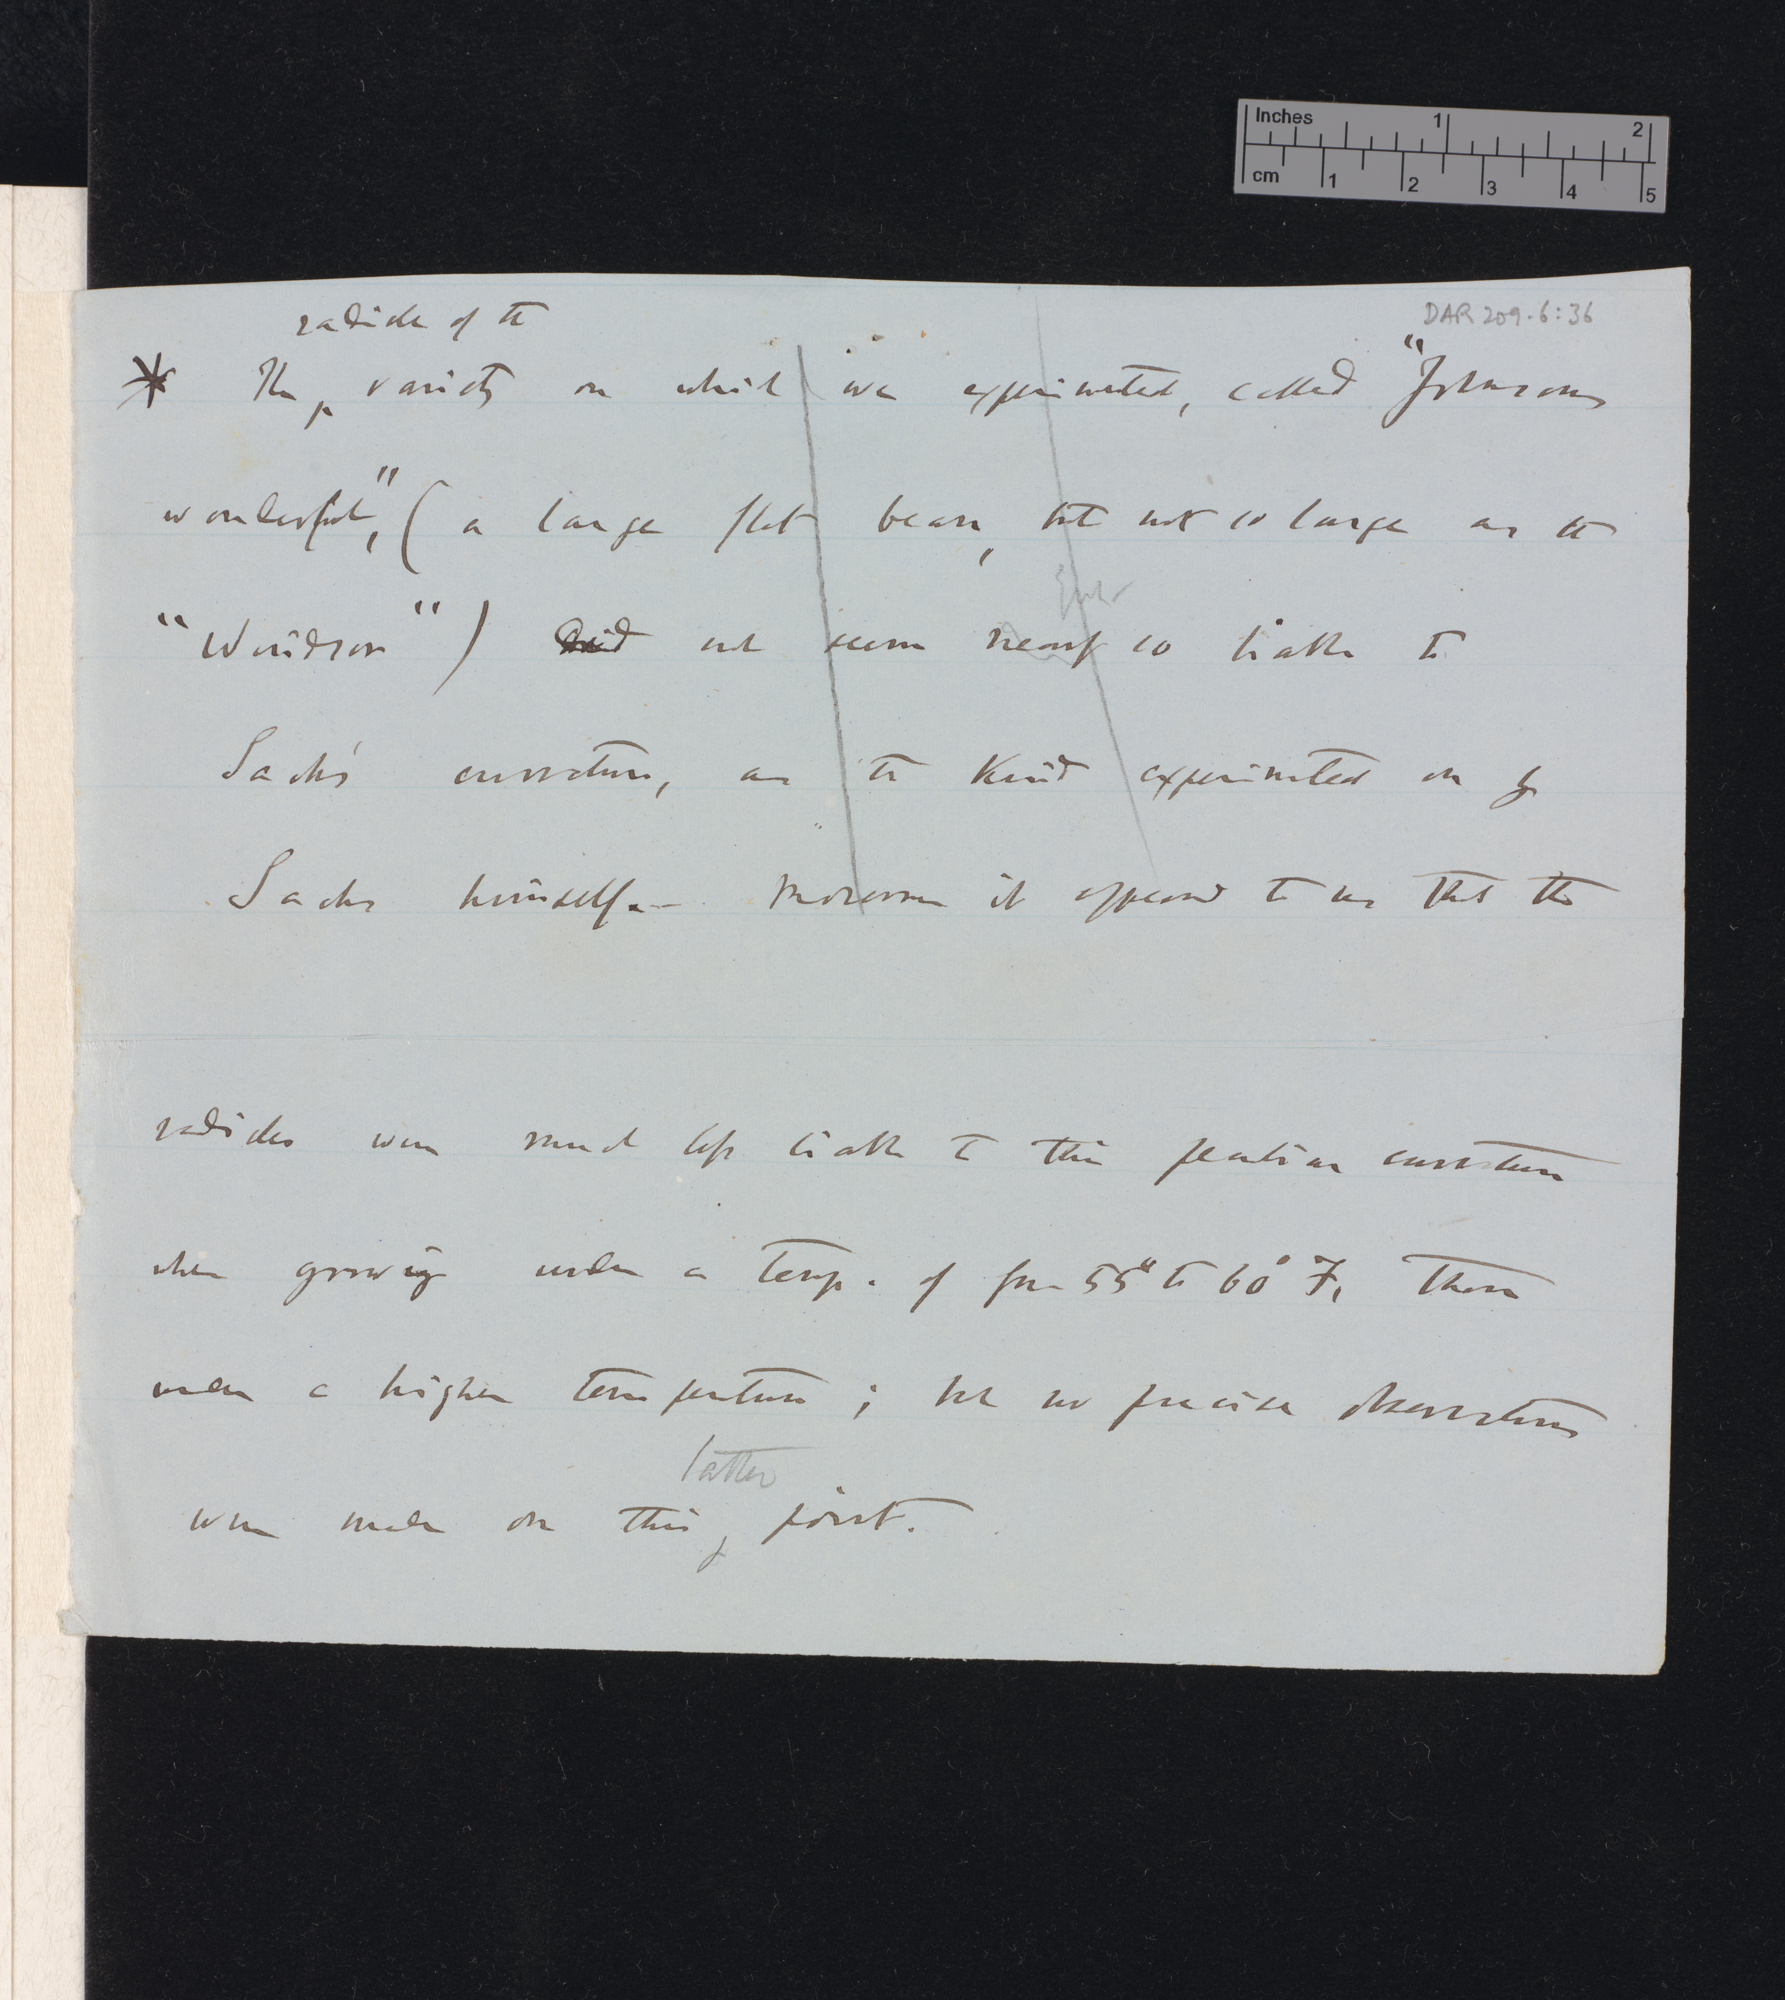 DAR 209.6:36
radicle of the
* The variety on which we experimented, called "Johnsons
wonderful", (a large flat bean, but not so large as the
"Windsor") did not seem nearly so liable to
Sachs' curvature, as the kind experimented on by
Sachs himself.— Moreover it appeared to us that the
radicles were much less liable to this peculiar curvature
when growing under a temp. of from 55° to 60° F, than
under a higher temperature; but no precise observations
latter
were made on this point.
Inches 1 2
cm 1 2 3 4 5